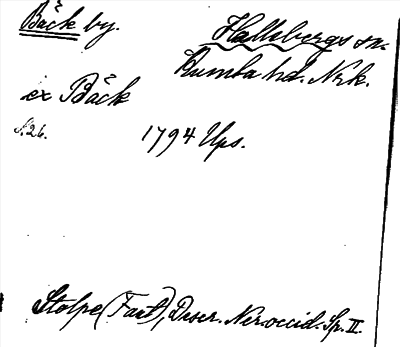 Bäck by.
Hallsbergs sn.
Kumla hd. Nrk.
ex Bäck
S. 26.
1794 Ups.
Stolpe (Fast), Descr. Ner. occid. Sp. II.